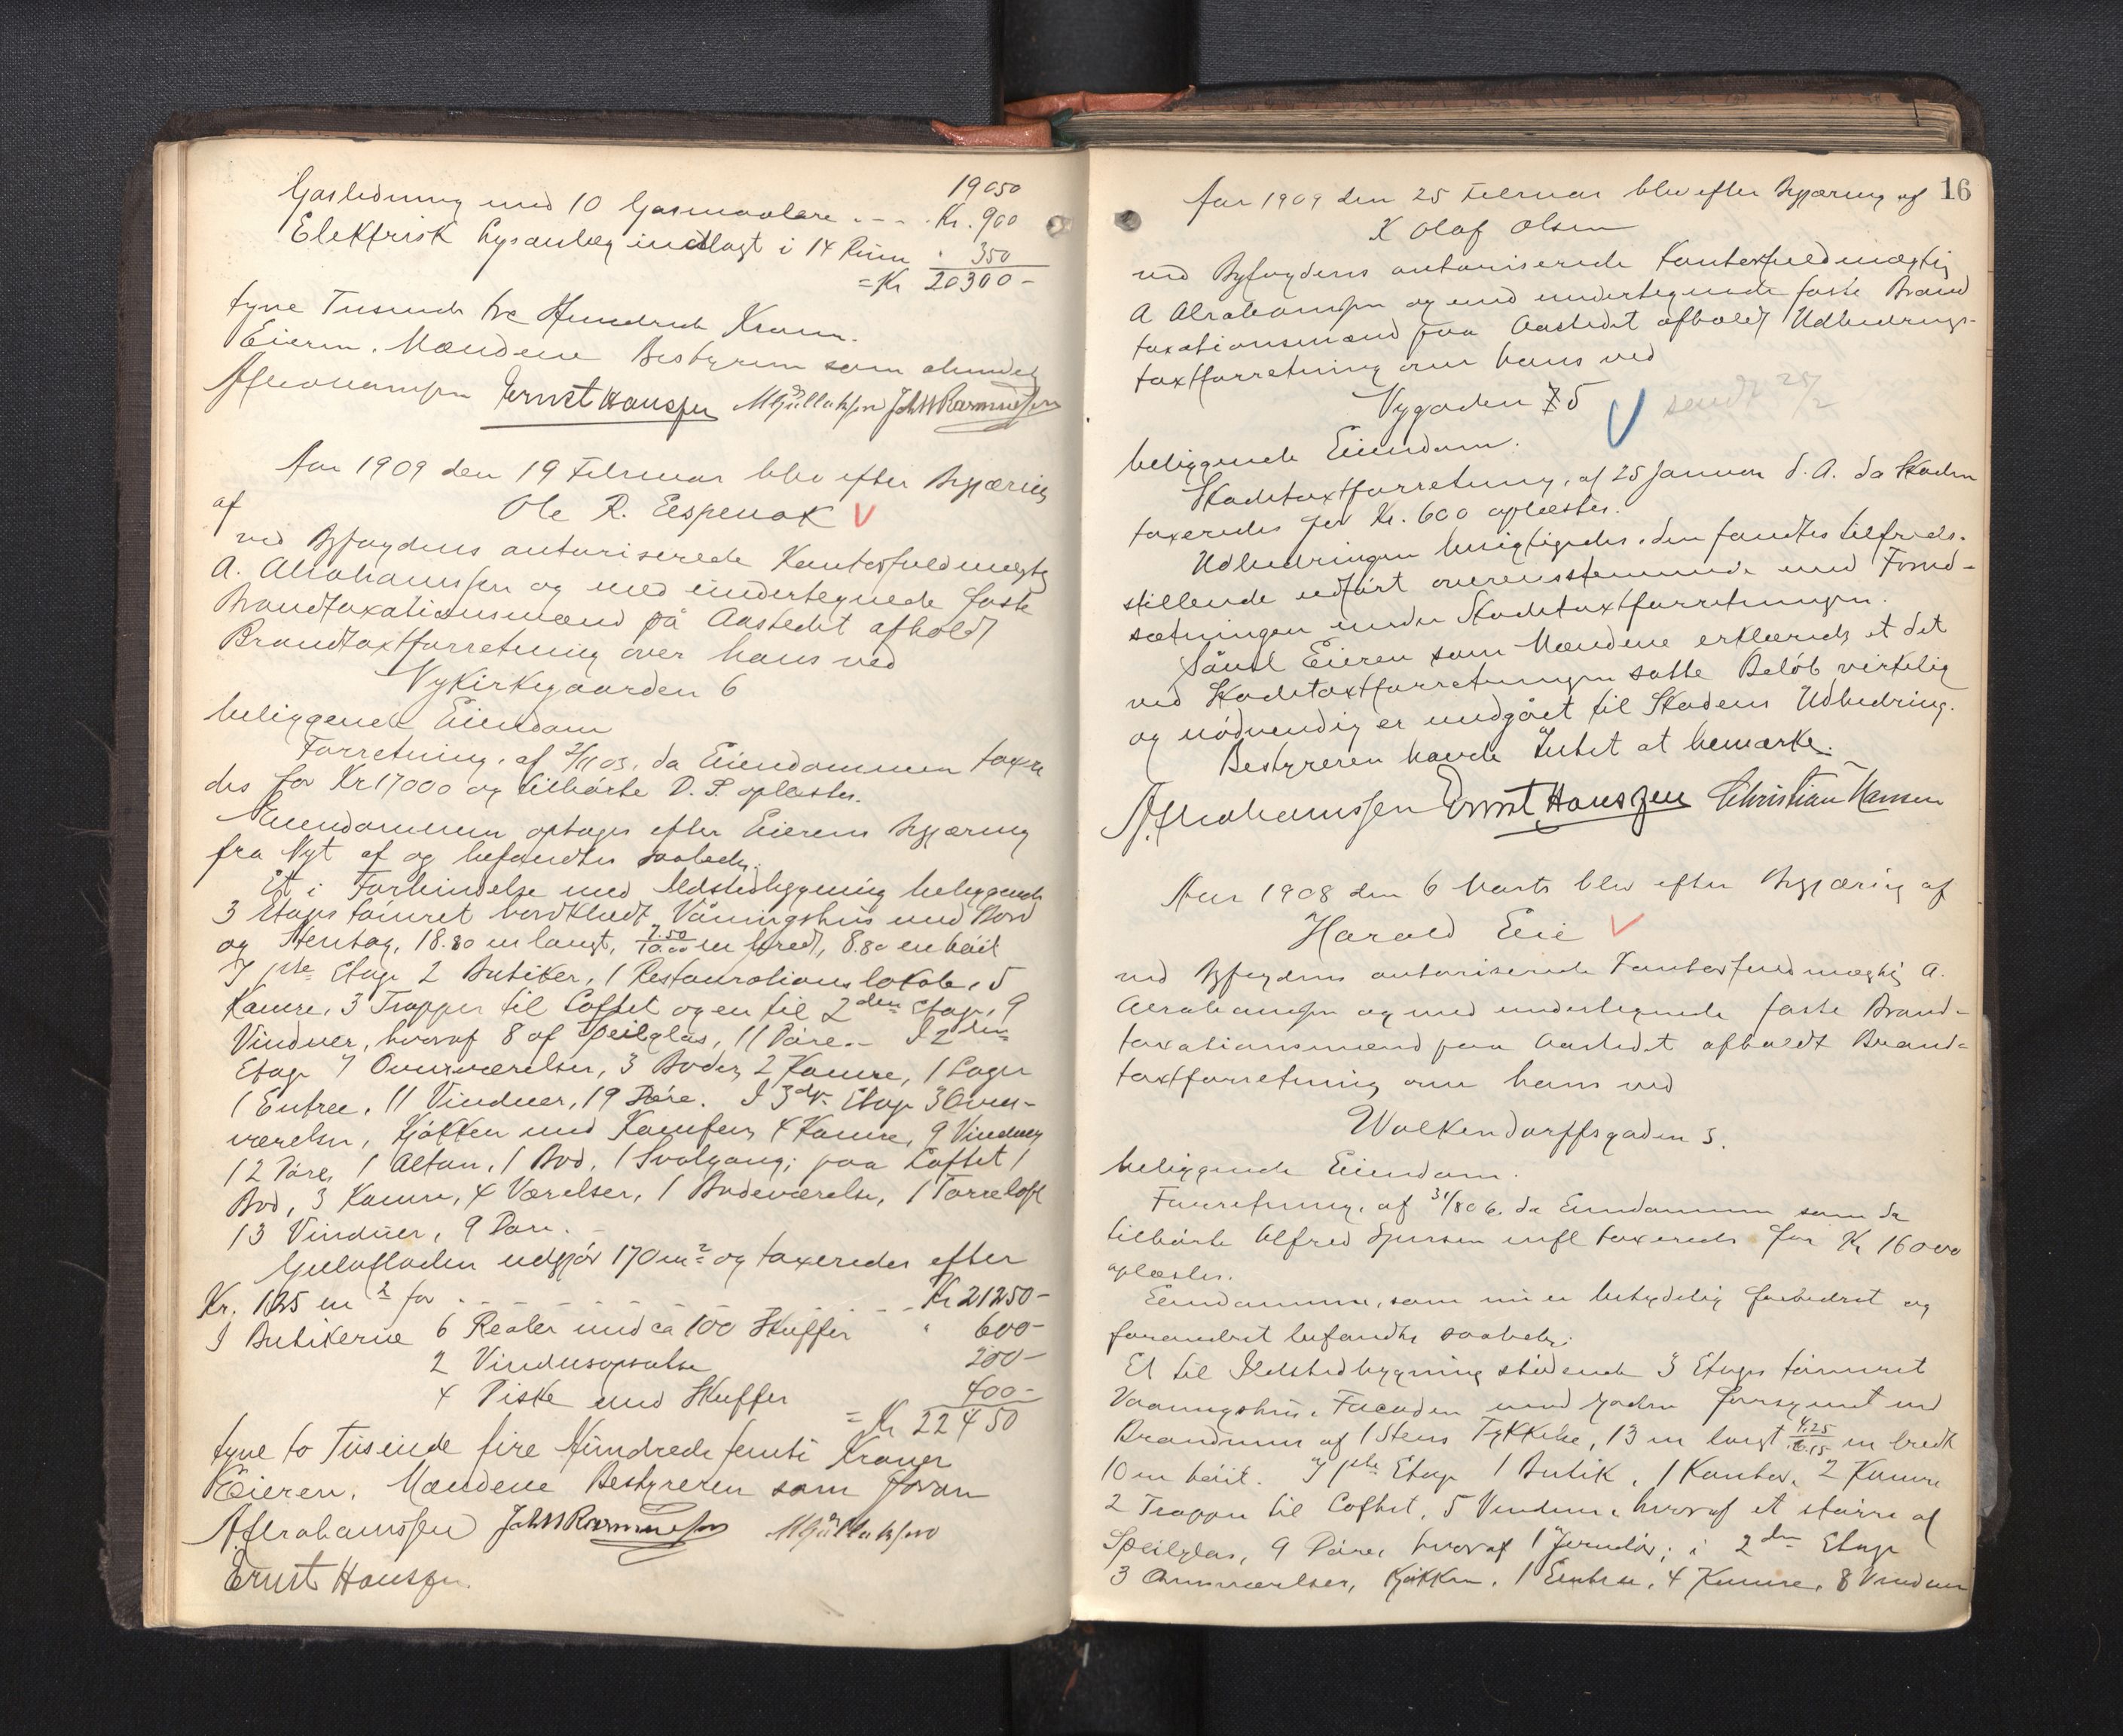 19050
Gasledning med 10 Gasmaalere - - - . Kr. 900
Elektrisk Lysanlæg indlagt i 14 Rum " 350
= Kr 20300 -
tyve Tusinde tre Hundrede Kroner.
Eieren, Mændene Bestyreren som ahnædes
AAbrahamssen Ernst Hanszen John Rasmussen
Aar 1909 den 19 Februar blev efter Begjæring
af
Ole R. Espenak V
ved Byfogdens autoriserede Kontorfuldmægtig
A. Abrahamssen og med undertegnede faste
Brandtaxationsmænd på Aastedet afholdt
Brandtaxtforretning over hans ved
Nykirkegaarden 6
beliggende Eiendom
Forretning, af 2/11 03, da Eiendommen taxere
des for Kr 17000 og tilhørte D. S. oplæstes.
Eiendommen optages efter Eierens Begjæring
fra Nyt af og befandtes saaledes:
Et i Forbindelse med Ildstedbygning beliggende
3 Etages tømret bordklædt Våningshus med Bord
og Stentag, 18.80 m langt, 7.50/10.00 m bredt, 8.80 m høit
I 1ste Etage 2 Butiker, 1 Restaurationslokale, 5
Kamre, 3 Trapper til Loftet og en til 2den Etage, 9
Vinduer, hvoraf 8 af Speilglas, 11 Døre. - I 2den
Etage 7 Overværelser, 3 Boder, 2 Kamre, 1 Lager
1 Entree, 11 Vinduer, 19 Døre. I 3die Etage 3 Over-
værelser, Kjøkken med Komfur, 4 Kamre, 9 Vinduer
12 Døre, 1 Altan, 1 Bod, 1 Svalgang; paa Loftet 1
Bod, 3 Kamre, 4 Værelser, 1 Badeværelse, 1 Tørreloft
13 Vinduer, 9 Døre. -
Gulvfladen udgjør 170 m² og taxeredes efter
Kr. 125 m² for - - - - - - Kr 21250 -
I Butikerne 6 Reoler med ca 100 Skuffer " 600 -
2 Vindusopsatse 200 -
4 Diske med Skuffer 400 -
= Kr 22450
tyve to Tusinde fire Hundrede femti Kroner
Eieren, Mændene Bestyreren som foran
AAbrahamssen John Rasmussen
Ernst Hanszen.
16
Aar 1909 den 25 Februar blev efter Begjæring af
X Olaf Olsen
ved Byfogdens autoriserede Kontorfuldmægtig
A Abrahamssen og med undertegnede faste Brand
taxationsmænd paa Aastedet afholdt Udbedrings-
taxtforretning over hans ved
Nygaden 5 V sendt 25/2
beliggende Eiendom.
Skadetaxtforretning, af 25 Januar d. A. da Skaden
taxeredes for Kr. 600 oplæstes.
Udbedringen besigtigedes, den fandtes tilfreds-
stillende udført overensstemmende med Forud-
sætningen under Skadetaxtforretningen.
Såvel Eieren som Mændene erklærede, at det
ved Skadetaxtforretningen satte Beløb virkelig
og nødvendig er medgået til Skadens Udbedring.
Bestyreren havde Intet at bemærke.
AAbrahamssen Ernst Hanszen Christian Hansen
Aar 1908 den 6 Marts blev efter Begjæring af
Harald Eie V
ved Byfogdens autoriserede Kontorfuldmægtig A.
Abrahamssen og med undertegnede faste Brand-
taxationsmænd paa Aastedet afholdt Brand-
taxtforretning over hans ved
Walkendorffsgaden 3.
beliggende Eiendom.
Forretning, af 31/8 06. da Eiendommen som da
tilhørte Alfred taxeredes for Kr 16000
oplæstes.
Eiendommen, som nu er betydelig forbedret og
forandret befandtes saaledes:
Et til Ildstedbygning stødende 3 Etages tømret
Vaaningshus, Facaden mod Gaden forsynet med
Brandmur af 1 Stens Tykkelse, 13 m langt 4.25/6.15 m bredt
10 m høit. I 1ste Etage 1 Butik, 1 Kontor, 2 Kamre
2 Trapper til Loftet, 5 Vinduer, hvoraf et større af
Speilglas, 9 Døre, hvoraf 1 Jerndør; i 2den Etage
3 Overværelser, Kjøkken, 1 Entree, 4 Kamre, 8 Vinduer